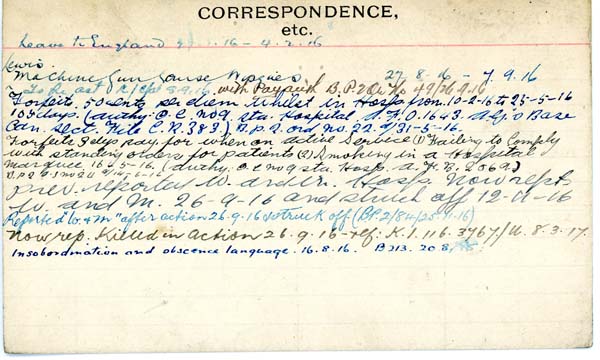 CORRESPONDENCE,
etc.
Leave to England 16 - 4.2.16
Lewis
Machine Gun Course 27.8.16 - 7.9.16
To be ast 8.9.16. with Pay auth B.P.2 49/26.9.16
Forfeits. 50 cents per diem whilst in Hosp from. 10-2-16 to 25-5-16
105 days. (Auth: O.C. No 9. sta. Hospital. A.F.O. 1643. Base
Can. sect. File C.R. 383.) B.p.2. ord. no. 22. d/31-5-16.
Forfeits days pay. for when on active service (1) Failing to Comply
with standing orders for patients (2) Smoking in a Hospital
16-5-16 (Auth: O.C. No 9 sta. Hosp. A.F.B. 2069.)
prev. reported W. and in Hosp. Now rept.
W. and M. 26-9-16 and struck off 12-11-16
Reported "W. & M" after action 26.9.16 & struck off (BP.2/84/25.11.16)
Now rep. Killed in action 26.9.16 - K.1.116.3767/U. 8.3.17.
Insobordnation and obscence language. 16.8.16. B213. 20.8